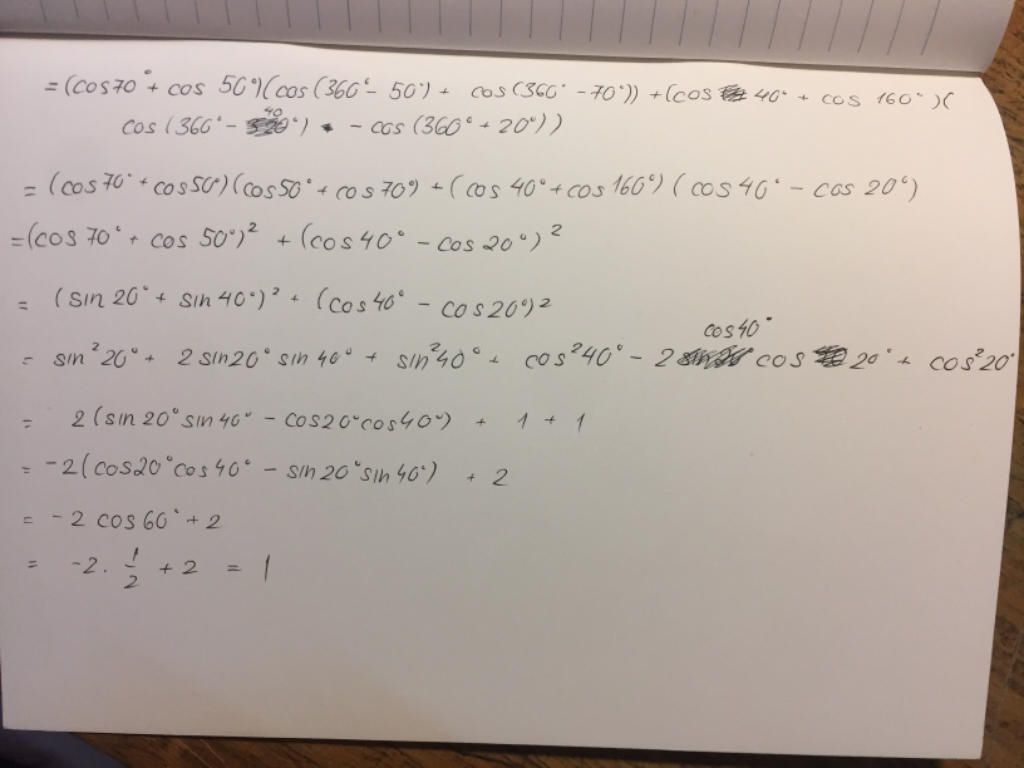 = (cos70° + cos 50°)(cos (360° - 50°) + cos (360° - 70°)) + (cos 40° + cos 160°)(
cos (360° - 40°) - cos (360° + 20°))
= (cos70° + cos50°)(cos50° + cos 70°) + (cos 40° + cos 160°) (cos 40° - cos 20°)
= (cos 70° + cos 50°)² + (cos 40° - cos 20°)²
= (sin 20° + sin 40°)² + (cos 40° - cos 20°)²
cos 40°
= sin² 20° + 2 sin20° sin 40° + sin² 40° + cos² 40° - 2 cos 20° + cos² 20°
= 2 (sin 20° sin 40° - cos20° cos40°) + 1 + 1
= -2 (cos20° cos 40° - sin 20° sin 40°) + 2
= -2 cos 60° + 2
= -2 . 1/2 + 2 = 1